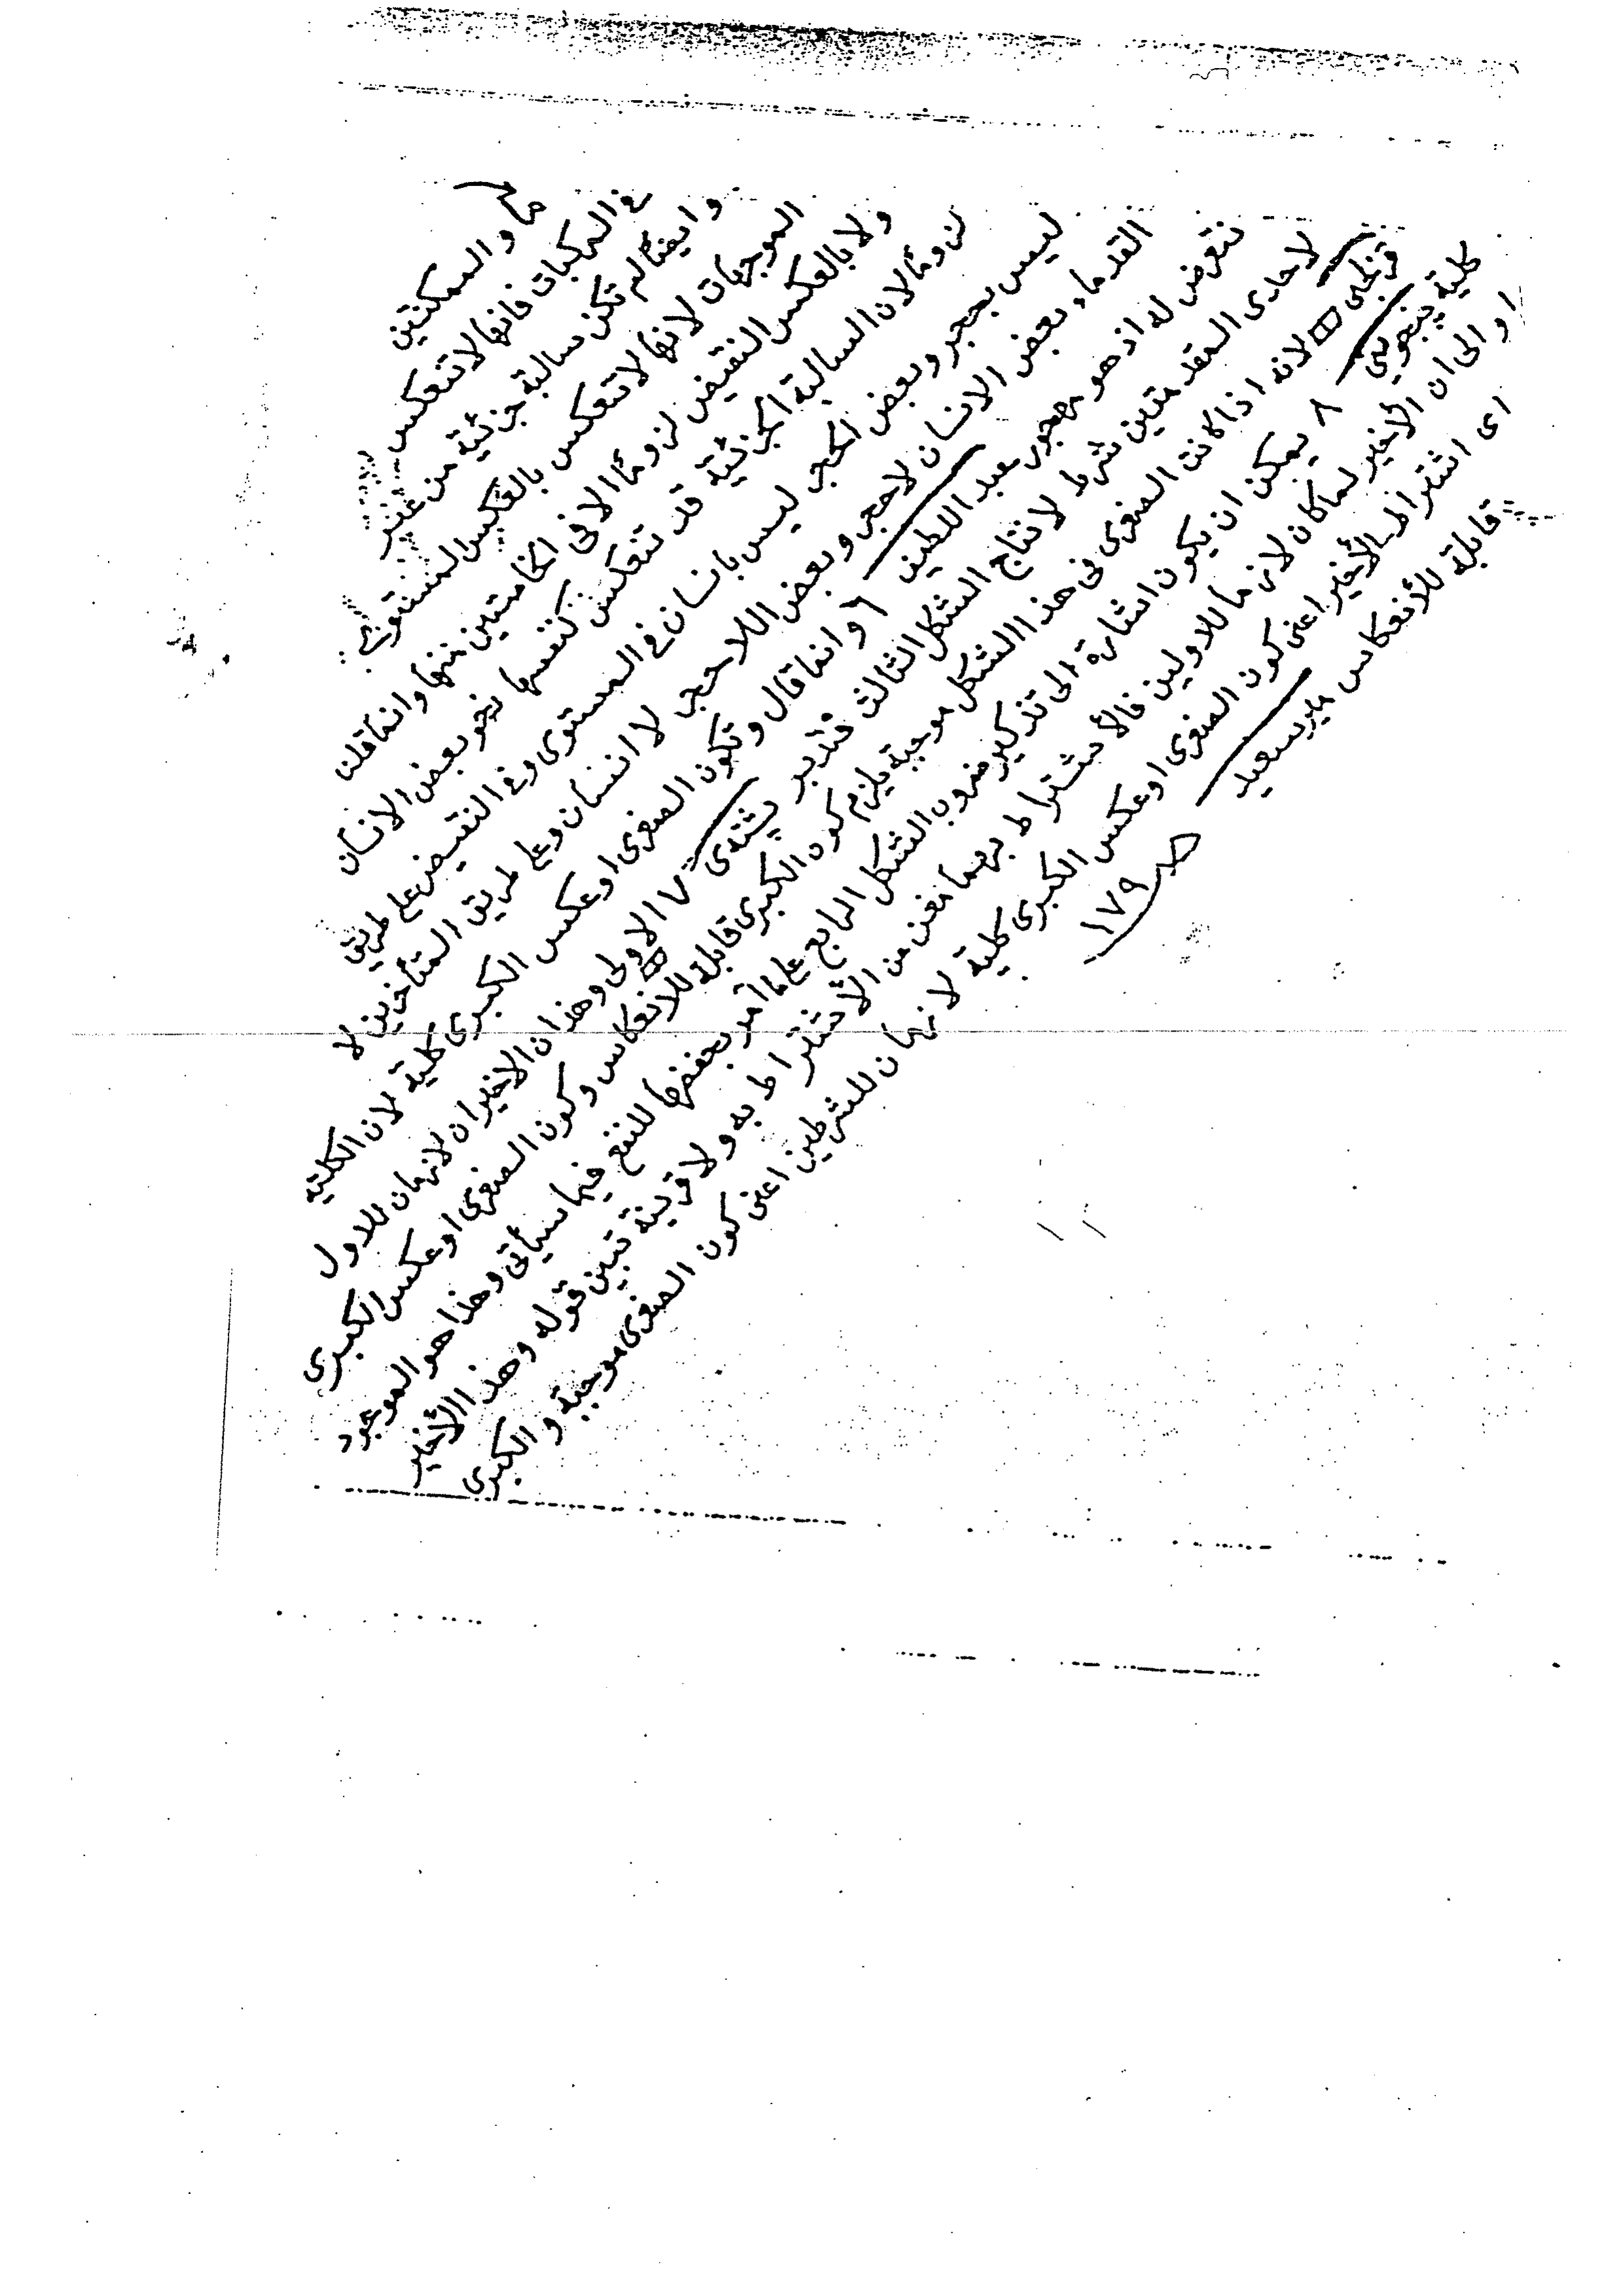 ما والممكنتين
في المركبات فانها لا تنعكس
وايضا لم تكن سالبة جزئية من غير
الموجهات لانها لا تنعكس بالعكس المستوي
ولا بالعكس النقيض لزومًا الا فى الخاصتين منها وانما قلنا
لزومًا لان السالبة الجزئية قد تنعكس كنفسها نحو بعض الانسان
ليس بحجر وبعض الحجر ليس بانسان في المستوى وفي النقيض على طريق
القدماء وبعض الانسان لاحجر وبعض اللاحجر لا انسان وعلى طريق المتأخرين لا
نتعرض له اذ هو مهجور عبد اللطيف ٦ وانما قال وتكون الصغرى او عكس الكبرى كلية لان الكلية
لاحدى المقدمتين شرط لانتاج الشكل الثالث فتدبر پشتدى ٧ الاولى وهذان الاخيران لازمان للاول
قزلجى لانه اذا كانت الصغرى فى هذا الشكل موجبة يلزم كون الكبرى قابلة للانعكاس وكون الصغرى او عكس الكبرى
كلية پنجوينى ٨ يمكن ان يكون اشارة الى تذكير ضروب الشكل الرابع على ما بعضها للنفع فيما سيأتى وهذا هو الموجود
او الى ان الأخير لما كان لازما للاولين فالأشتراط بهما مغن من الأشتراط به ولا قرينة تبين قوله وهذا الأخير
اى اشتراط الأخير اعنى كون الصغرى او عكس الكبرى كلية لازمان للشرطين اعنى كون الصغرى موجبة والكبرى
قابلة للأنعكاس ميرسعيد صـ ١٧٩